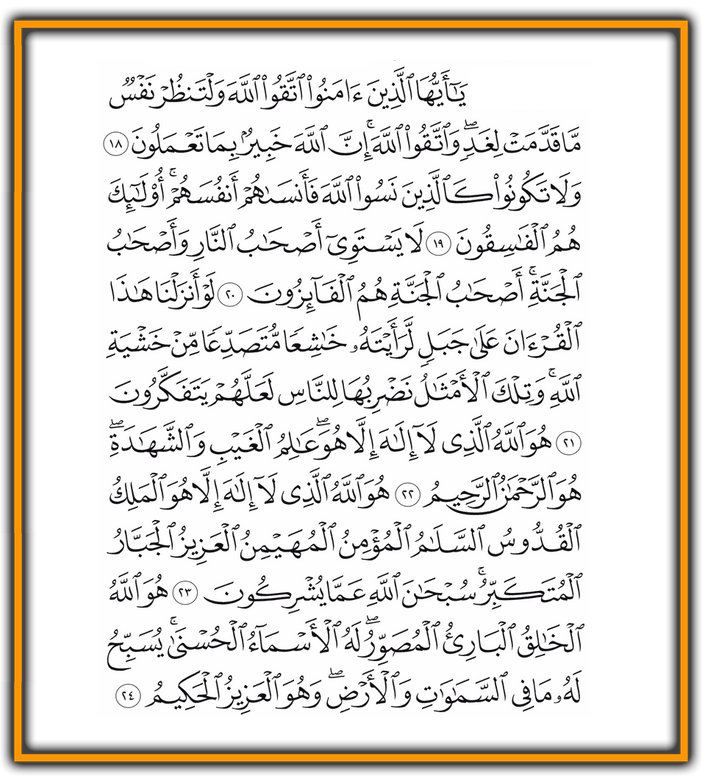 يَـٰٓأَيُّهَا ٱلَّذِينَ ءَامَنُوا۟ ٱتَّقُوا۟ ٱللَّهَ وَلْتَنظُرْ نَفْسٌ
مَّا قَدَّمَتْ لِغَدٍ ۖ وَٱتَّقُوا۟ ٱللَّهَ ۚ إِنَّ ٱللَّهَ خَبِيرٌۢ بِمَا تَعْمَلُونَ ١٨
وَلَا تَكُونُوا۟ كَٱلَّذِينَ نَسُوا۟ ٱللَّهَ فَأَنسَىٰهُمْ أَنفُسَهُمْ ۚ أُو۟لَـٰٓئِكَ
هُمُ ٱلْفَـٰسِقُونَ ١٩ لَا يَسْتَوِىٓ أَصْحَـٰبُ ٱلنَّارِ وَأَصْحَـٰبُ
ٱلْجَنَّةِ ۚ أَصْحَـٰبُ ٱلْجَنَّةِ هُمُ ٱلْفَآئِزُونَ ٢٠ لَوْ أَنزَلْنَا هَـٰذَا
ٱلْقُرْءَانَ عَلَىٰ جَبَلٍ لَّرَأَيْتَهُۥ خَـٰشِعًا مُّتَصَدِّعًا مِّنْ خَشْيَةِ
ٱللَّهِ ۚ وَتِلْكَ ٱلْأَمْثَـٰلُ نَضْرِبُهَا لِلنَّاسِ لَعَلَّهُمْ يَتَفَكَّرُونَ
٢١ هُوَ ٱللَّهُ ٱلَّذِى لَآ إِلَـٰهَ إِلَّا هُوَ ۖ عَـٰلِمُ ٱلْغَيْبِ وَٱلشَّهَـٰدَةِ ۖ
هُوَ ٱلرَّحْمَـٰنُ ٱلرَّحِيمُ ٢٢ هُوَ ٱللَّهُ ٱلَّذِى لَآ إِلَـٰهَ إِلَّا هُوَ ٱلْمَلِكُ
ٱلْقُدُّوسُ ٱلسَّلَـٰمُ ٱلْمُؤْمِنُ ٱلْمُهَيْمِنُ ٱلْعَزِيزُ ٱلْجَبَّارُ
ٱلْمُتَكَبِّرُ ۚ سُبْحَـٰنَ ٱللَّهِ عَمَّا يُشْرِكُونَ ٢٣ هُوَ ٱللَّهُ
ٱلْخَـٰلِقُ ٱلْبَارِئُ ٱلْمُصَوِّرُ ۖ لَهُ ٱلْأَسْمَآءُ ٱلْحُسْنَىٰ ۚ يُسَبِّحُ
لَهُۥ مَا فِى ٱلسَّمَـٰوَٰتِ وَٱلْأَرْضِ ۖ وَهُوَ ٱلْعَزِيزُ ٱلْحَكِيمُ ٢٤